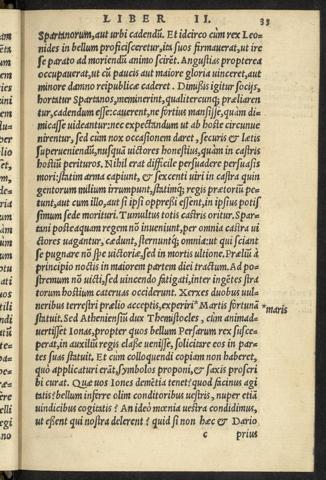 LIBER II. 33
Spartanorum, aut urbi cadendū. Et idcirco cùm rex Leo-
nides in bellum proficisceretur, ita suos firmauerat, ut ire
se parato ad moriendū animo scirēt. Angustias propterea
occupauerat, ut cū paucis aut maiore gloria uinceret, aut
minore damno reipublicæ caderet. Dimißis igitur socijs,
hortatur Spartanos, meminerint, qualitercunq; præliaren
tur, cadendum esse: cauerent, ne fortius mansisse, quàm di-
micasse uideantur: nec expectandum ut ab hoste circunue
nirentur, sed cùm nox occasionem daret, securis & lætis
superueniendū, nusquā uictores honestius, quàm in castris
hostiū perituros. Nihil erat difficile persuadere persuasis
mori: statim arma capiunt, & sexcenti uiri in castra quin
gentorum milium irrumpunt, statimq; regis prætoriū pe-
tunt, aut cum illo, aut si ipsi oppreßi essent, in ipsius potis
simum sede morituri. Tumultus totis castris oritur. Spar-
tani postea quam regem nō inueniunt, per omnia castra ui
ctores uagantur, cædunt, sternuntq; omnia: ut qui sciant
se pugnare nō spe uictoriæ, sed in mortis ultione. Præliū à
principio noctis in maiorem partem diei tractum. Ad po-
stremum nō uicti, sed uincendo fatigati, inter ingētes stra
torum hostium cateruas occiderunt. Xerxes duobus vul-
neribus terrestri prælio acceptis, experiri Martis fortunā
maris
statuit. Sed Atheniensiū dux Themistocles, cùm animad-
uertisset Ionas, propter quos bellum Persarum rex susce-
perat, in auxiliū regis classe uenisse, solicitare eos in par-
tes suas statuit. Et cum colloquendi copiam non haberet,
quò applicaturi erāt, symbolos proponi, & saxis proscri
bi curat. Quæ uos Iones demētia tenet? quod facinus agi
tatis? bellum inferre olim conditoribus uestris, nuper etiā
uindicibus cogitatis? An ideò mœnia uestra condidimus,
ut essent qui nostra delerent? quid si non hæc & Dario
c prius